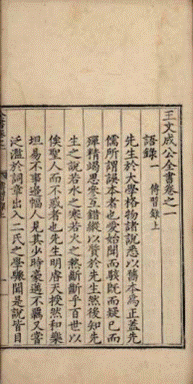 王文成公全書卷之一
語錄一
傳習錄上
先生於大學格物諸說悉以舊本為正蓋先
儒所謂誤本者也愛始聞而駭既而疑已而
殫精竭思參互錯縱以質於先生然後知先
生之說若水之寒若火之熱斷斷乎百世以
俟聖人而不惑者也先生明睿天授然和樂
坦易不事邊幅人見其少時豪邁不羈又嘗
泛濫於詞章出入二氏之學驟聞是說皆目